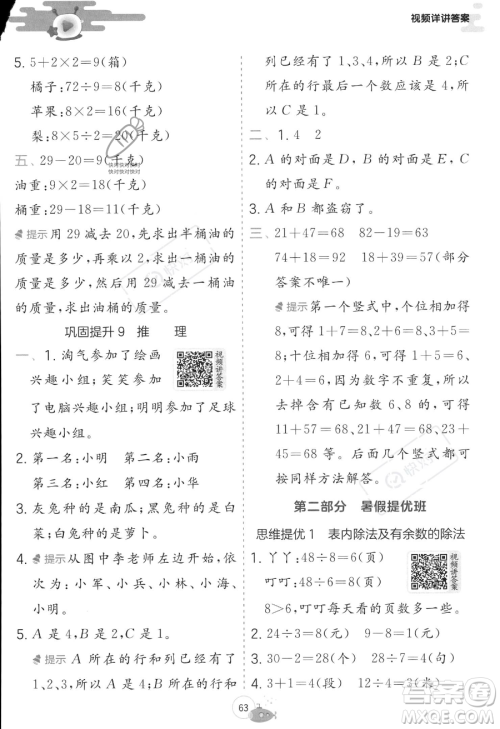 视频详讲答案
5. 5+2×2=9(箱)
橘子:72÷9=8(千克)
苹果:8×2=16(千克)
梨:8×5÷2=20(千克)
五、29-20=9(千克)
油重:9×2=18(千克)
桶重:29-18=11(千克)
提示 用 29 减去 20,先求出半桶油的
质量是多少,再乘 2,求出一桶油的质
量是多少,最后用 29 减去一桶油的质
量,求出油桶的质量。
巩固提升 9 推 理
一、1. 淘气参加了绘画
兴趣小组;笑笑参加
了电脑兴趣小组;明明参加了足球
兴趣小组。
视频讲答案
2. 第一名:小明 第二名:小雨
第三名:小红 第四名:小刚
3. 灰兔种的是南瓜;黑兔种的是冬瓜;
白兔种的是西瓜。
4. 提示 从图中李老师开始,逆时针方
向依次为:小军、小兵、小林、小红、小
海、小明。
5. A 是 4,B 是 2,C 是 1。
提示 A 所在的行和列已经有了
1、2、3,所以 A 是 4;B 所在的行和
列已经有了 1、3、4,所以 B 是 2;C
所在的行最后一个数应该是 4,
所以 C 是 1。
二、1. 4 2
2. A 的对面是 D,B 的对面是 E,C 的
对面是 F。
3. A 和 B 都盗窃了。
三、21+47=68 82-19=63
74+18=92 18+39=57(部分
答案不唯一)
提示 第一个竖式中,个位相加得
8,只有 1+7=8,十位上的数相加
得 6,在剩下的数字中,只有 2+4=
6,或 4+2=6。所以第一个竖式是
21+47=68,或 27+41=68,或
41+27=68,或 47+21=68。其他都可
按同样方法解答。
第二部分 暑假提优班
思维提优 1 表内除法及有余数的除法
1. 丫丫:48÷8=6(页)
叮叮:48÷6=8(页)
8>6,叮叮每天看的页数多一些。
视频讲答案
2. 24÷3=8(元) 32÷8=4(元)
3. 30-2=28(米) 28÷4=7(米)
4. 3+1=4(段) 12÷4=3(分)
63
快对快对快对
快对快对快对
答案圈
MXQE.COM